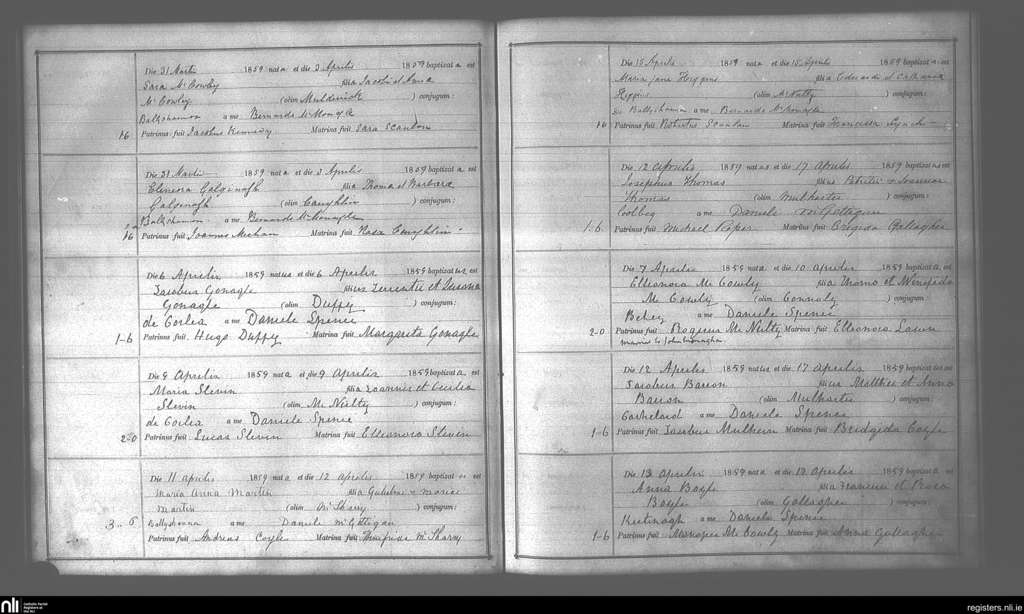 Die 31 Martii 1859 nata et die 3 Aprilis 1859 baptizata est
Sara McCowley filia Jacobi et Anna
McCowley (olim Muldernick) conjugum:
Ballyshannon a me Bernardo McMonagle
1-6 Patrinus fuit Jacobus Kennedy Matrina fuit Sara Scanlon
Die 31 Martii 1859 nata et die 3 Aprilis 1859 baptizata est
Elenora Galgenogh filia Thoma et Barbara
Galgenogh (olim Caughlin) conjugum:
Ballyshannon a me Bernardo McMonagle
1-6 Patrinus fuit Joannes Meehan Matrina fuit Rosa Caughlin
Die 6 Aprilis 1859 natus et die 6 Aprilis 1859 baptizatus est
Jacobus Gonagle filius Terentii et
Gonagle (olim Duffy) conjugum:
de Corlea a me Daniele Spence
1-6 Patrinus fuit Hugo Duffy Matrina fuit Margarita Gonagle
Die 9 Aprilis 1859 nata et die 9 Aprilis 1859 baptizata est
Maria Slevin filia Joannis et Cecilia
Slevin (olim McNulty) conjugum:
de Corlea a me Daniele Spence
2-0 Patrinus fuit Lucas Slevin Matrina fuit Elleonora Slevin
Die 11 Aprilis 1859 nata et die 12 Aprilis 1859 baptizata est
Maria Anna Martin filia Gulielmi &
Martin (olim McSharry) conjugum:
Ballyshanna a me Daniele McGettigan
3-6 Patrinus fuit Andreas Coyle Matrina fuit Winifrida McSharry
Die 15 Aprilis 1859 nata et die 15 Aprilis 1859 baptizata est
Maria Jane Higgins filia Edwardi et Catharina
Higgins (olim McNulty) conjugum:
de Ballyshannon a me Bernardo McMonagle
1-6 Patrinus fuit Robertus Scanlan Matrina fuit Francissa Lynch
Die 12 Aprilis 1859 natus et die 17 Aprilis 1859 baptizatus est
Josephus Thomas filius Patritii &
Thomas (olim Mulharter) conjugum:
Coolbeg a me Daniele McGettigan
1-6 Patrinus fuit Michael Roper Matrina fuit Brigida Gallagher
Die 7 Aprilis 1859 nata et die 10 Aprilis 1859 baptizata est
Elleonora McCowly filia Thoma et Winefrida
McCowly (olim Connoly) conjugum:
Behey a me Daniele Spence
2-0 Patrinus fuit Rogerus McNulty Matrina fuit Elleonora
married to John Monaghan
Die 12 Aprilis 1859 natus et die 17 Aprilis 1859 baptizatus est
Jacobus Barron filius Matthei et Anna
Barron (olim Mulharter) conjugum:
a me Daniele Spence
1-6 Patrinus fuit Jacobus Mulhern Matrina fuit Bridgida Coyle
Die 13 Aprilis 1859 nata et die 13 Aprilis 1859 baptizata est
Anna Boyle filia Francisci et Rosa
Boyle (olim Gallagher) conjugum:
a me Daniele Spence
1-6 Patrinus fuit McCowly Matrina fuit Anna Gallagher
nli
Catholic Parish Registers at the NLI
registers.nli.ie